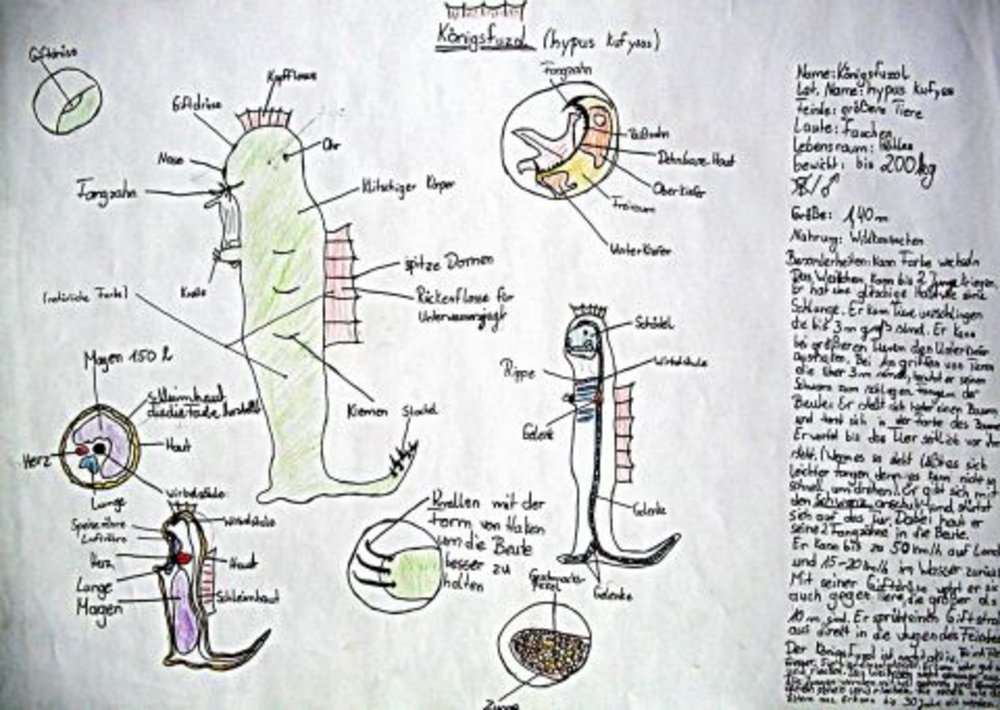 Königsfuzol (hypus kufysss)
Giftdrüse
Kopfflosse
Giftdrüse
Ohr
Nase
Fangzahn
Klitschiger Körper
spitze Dornen
Rückenflosse für
Unterwasserjagt
(natürliche Farbe)
Kralle
Kiemen
Stachel
Fangzahn
Reißzahn
Dehnbare Haut
Oberkiefer
Freiraum
Unterkiefer
Magen 150 l
Schleimhaut
die die Farbe herstellt
Haut
Herz
Lunge
Wirbelsäule
Speiseröhre
Luftröhre
Wirbelsäule
Herz
Haut
Lunge
Schleimhaut
Magen
Krallen mit der
form von Haken
um die Beute
besser zu
halten
Schädel
Wirbelsäule
Rippe
Gelenk
Gelenke
Gelenke
Zunge
Name: Königsfuzol
Lat. Name: hypus kufysss
Feinde: größere Tiere
Laute: Fauchen
Lebensraum: Höhlen
bewicht: bis 200 kg
Größe: 1,40 m
Nahrung: Wildkaninchen
Besonderheiten: Kann Farbe wechseln
Das Weibchen kann bis 2 Junge kriegen
Er hat eine glitschige Haut wie eine
Schlange. Er kann Tiere verschlingen
die bis 3 m groß sind. Er kann
bei größeren Tieren den Unterkiefer
aushaken. Bei Angriffen von Tieren
Schwanz zum schlagen
Beute: Er stellt sich hinter einen Baum
und tarnt sich in der Farbe des Baum
Er wartet bis das Tier seitlich vor ihm
steht. (Wenn es so steht läßt es sich
leichter fangen denn es kann nicht so
schnell umdrehen). Er gibt sich mit
den Schwanz anschub und stürzt
sich auf das Tier. Dabei haut er
seine 2 Fangzähne in die Beute.
Er kann bis zu 50 km/h auf Land
und 15-20 km/h im Wasser zurück
Mit seiner Giftdrüse wehrt er sich
auch gegen Tiere, die größer als
10 m sind. Er sprüht einen Giftstrahl
aus direkt in die Augen des Feindes
Der Königsfuzol ist nachtaktiv.